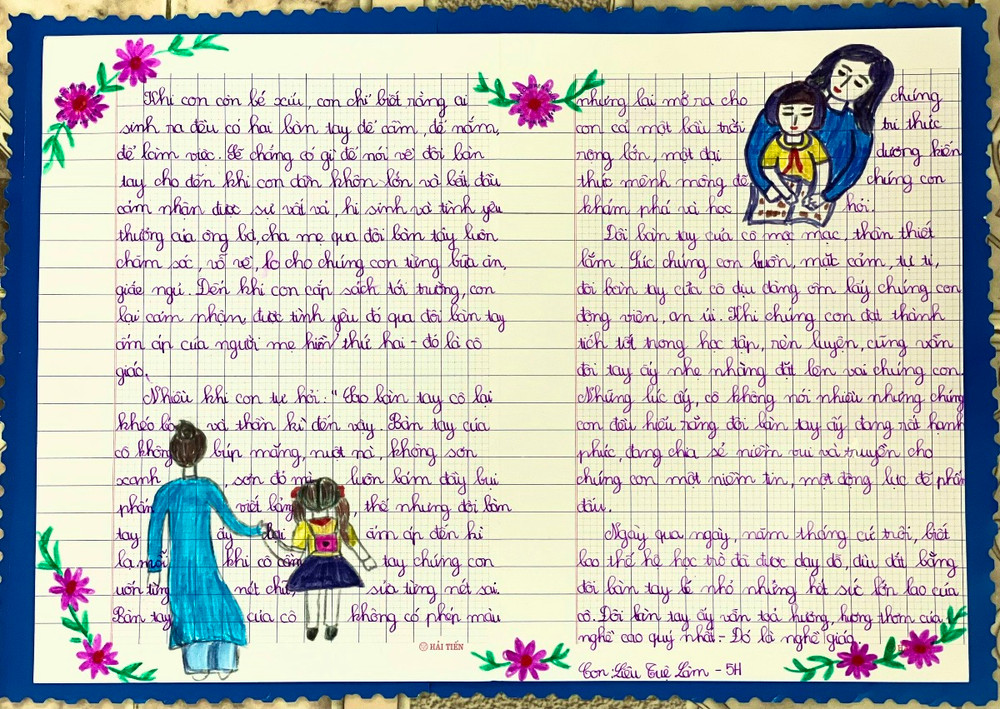 Khi con còn bé xíu, con chỉ biết rằng ai
sinh ra đều có hai bàn tay để cầm, để nắm,
để làm việc. Sẽ chẳng có gì để nói về đôi bàn
tay cho đến khi con dần khôn lớn và bắt đầu
cảm nhận được sự vất vả, hi sinh và tình yêu
thương của ông bà, cha mẹ qua đôi bàn tay luôn
chăm sóc, vỗ về, lo cho chúng con từng bữa ăn,
giấc ngủ. Đến khi con cắp sách tới trường, con
lại cảm nhận được tình yêu đó qua đôi bàn tay
ấm áp của người mẹ hiền thứ hai - đó là cô
giáo.
Nhiều khi con tự hỏi: "Sao bàn tay cô lại
khéo léo và thần kì đến vậy. Bàn tay của
cô không búp măng, nuột nà, không sơn
xanh, sơn đỏ mà luôn bám đầy bụi
phấn viết bảng, thế nhưng đôi bàn
tay ấy lại ấm áp đến kì
lạ mỗi khi cô cầm tay chúng con
uốn từng nét chữ, sửa từng nét sai.
Bàn tay của cô không có phép màu
HẢI TIẾN
nhưng lại mở ra cho chúng
con cả một bầu trời tri thức
rộng lớn, một đại dương kiến
thức mênh mông để chúng con
khám phá và học hỏi.
Đôi bàn tay của cô mộc mạc, thân thiết
lắm. Lúc chúng con buồn, mặt cảm, tự ti,
đôi bàn tay của cô dịu dàng ôm lấy chúng con
động viên, an ủi. Khi chúng con đạt thành
tích tốt trong học tập, rèn luyện, cũng vẫn
đôi tay ấy nhẹ nhàng đặt lên vai chúng con.
Những lúc ấy, cô không nói nhiều nhưng chúng
con đều hiểu rằng đôi bàn tay ấy đang rất hạnh
phúc, đang chia sẻ niềm vui và truyền cho
chúng con một niềm tin, một động lực để phấn
đấu.
Ngày qua ngày, năm tháng cứ trôi, biết
bao thế hệ học trò đã được dạy dỗ, dìu dắt bằng
đôi bàn tay bé nhỏ nhưng hết sức lớn lao của
cô. Đôi bàn tay ấy vẫn toả hương, hương thơm của
nghề cao quý nhất - Đó là nghề giáo.
Con: Liêu Tuệ Lâm - 5H